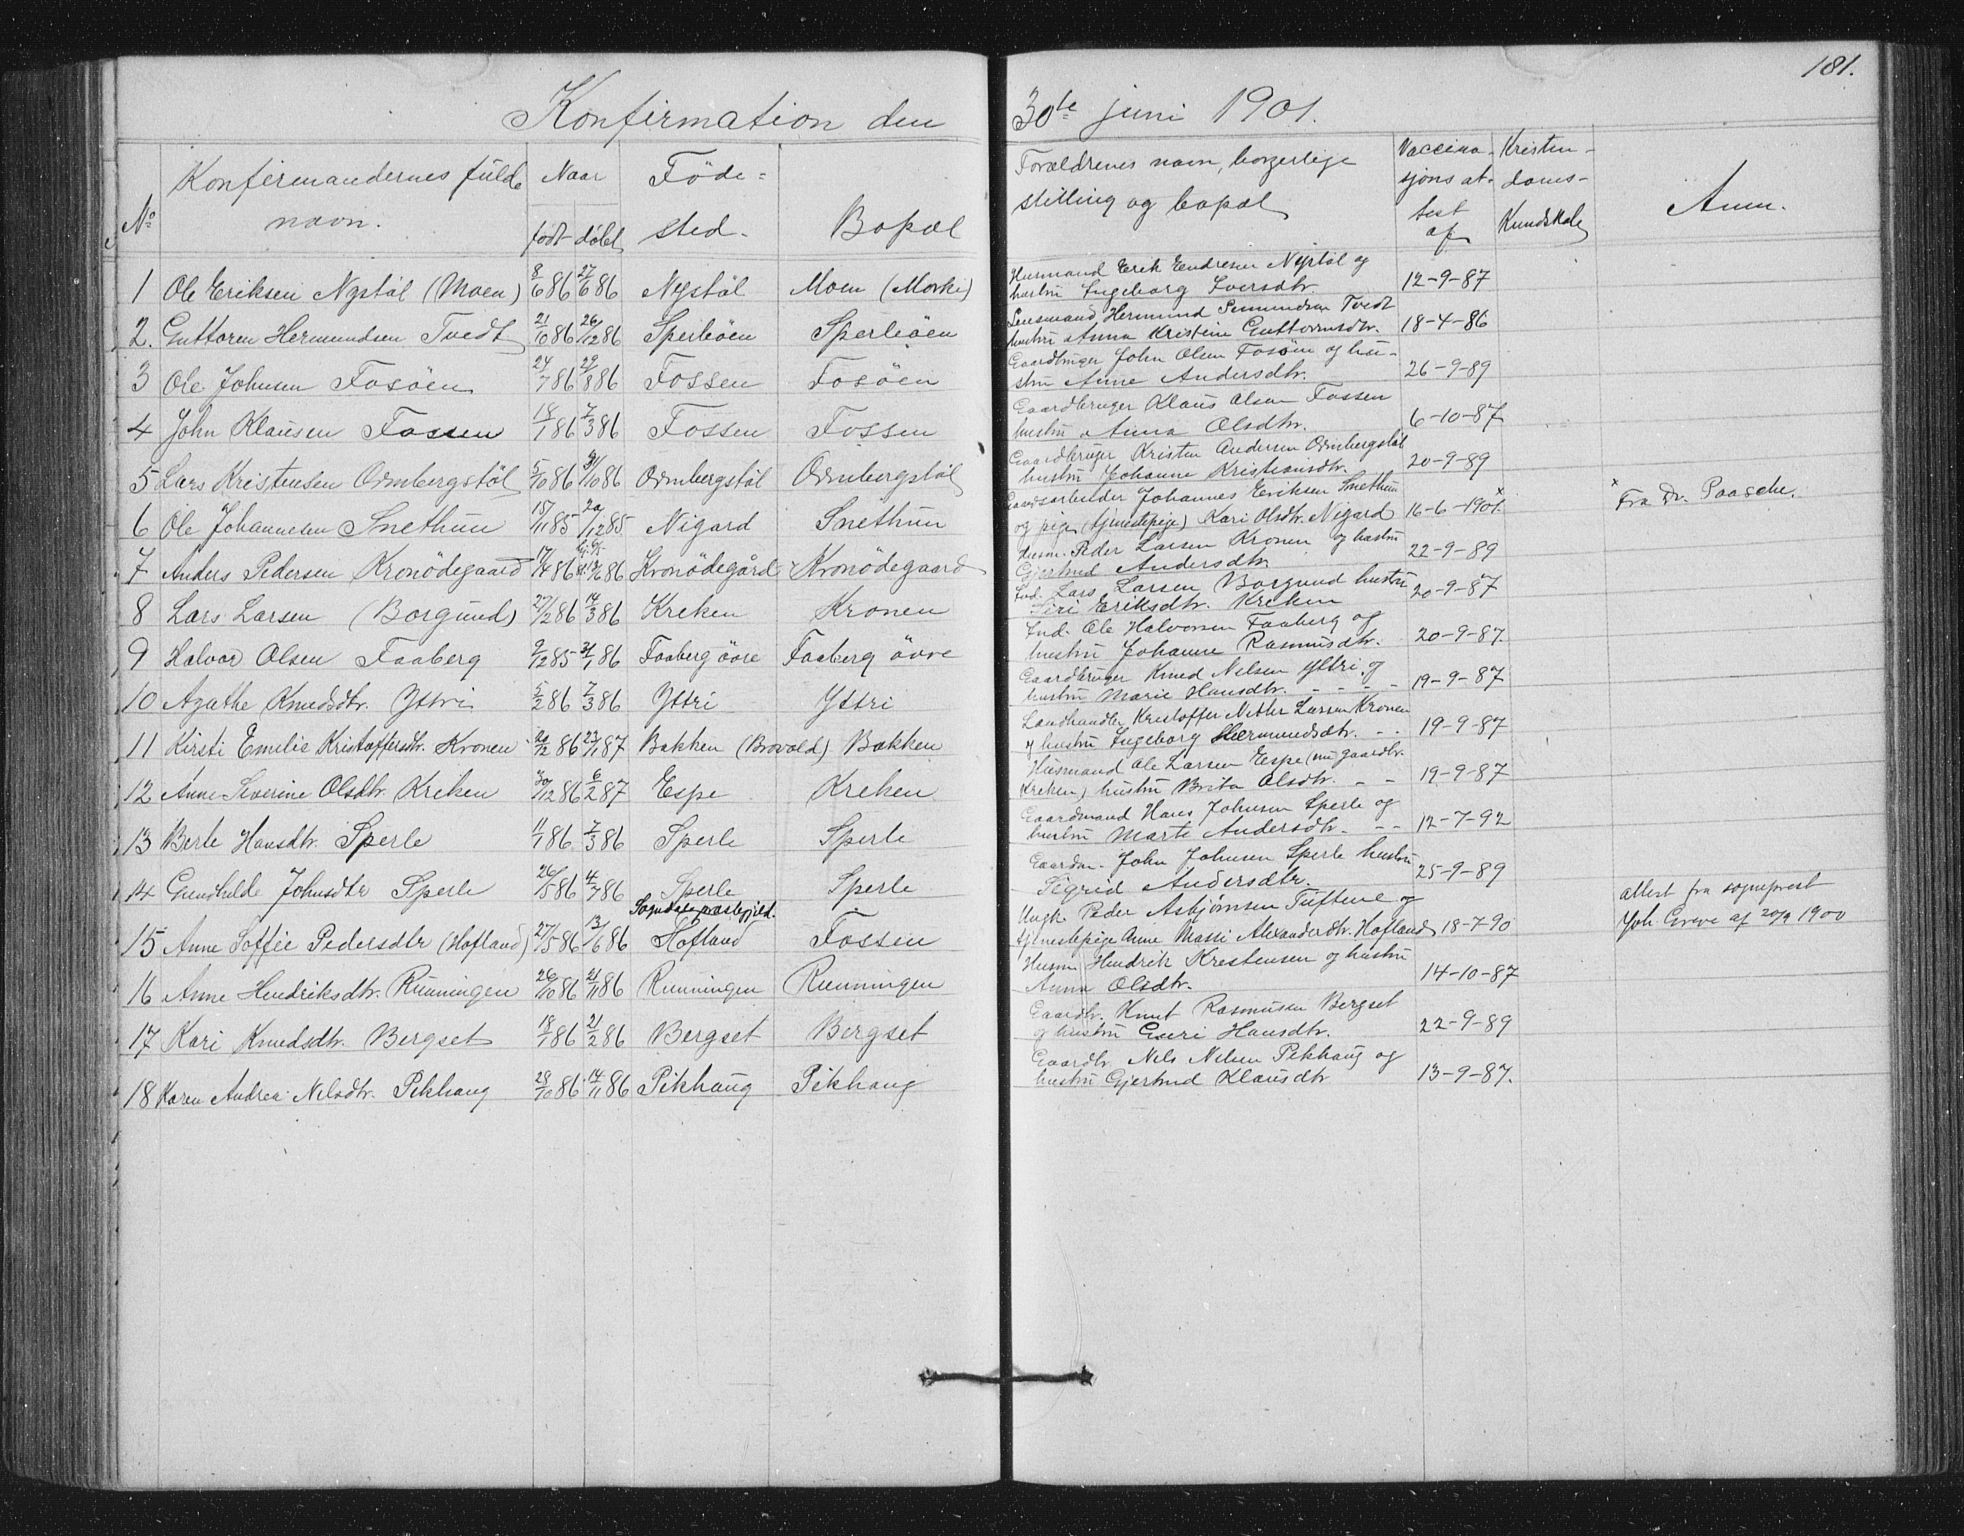 181.
Konfirmation den 30te juni 1901.
No Konfirmandernes fulde navn. Naar født døbt Føde= sted. Bopæl Forældrenes navn, borgerlige stilling og bopæl Vaccina- sjons at- test af Kristen- doms- Kundskab Anm.
1 Ole Eriksen Nystøl (Moen) 8/6 86 27/6 86 Nystøl Moen (Mørki) Husmand Erik Endresen Nystøl og
hustru Ingeborg Iversdtr. 12-9-87
2. Guttorm Hermundsen Tvedt 21/10 86 26/12 86 Sperleøen Sperleøen Lensmand Hermund Semundsen Tvedt
hustru Anna Kristine Guttormsdtr. 18-4-86
3 Ole Johnsen Fosøen 24/7 86 29/8 86 Fossen Fosøen Gaardbruger John Olsen Fosøen og hu-
stru Anne Andersdtr. 26-9-89
4 John Klausen Fossen 18/1 86 7/3 86 Fossen Fossen Gaardbruger Klaus Olsen Fossen
hustru Anna Olsdtr. 6-10-87
5 Lars Kristensen Ormbergstøl 5/10 86 31/10 86 Ormbergstøl Ormbergstøl Gaardbruger Kristen Andersen Ormbergstøl
hustru Johanne Kristiansdtr. 20-9-89
6 Ole Johannesen Snethun 15/11 85 20/12 85 Nigard Snethun Gaardsarbeider Johannes Eriksen Snethun
og pige (tjenestepige) Kari Olsdtr. Nigard 16-6-1901. x x Fra Dr. Paasche.
7 Anders Pedersen Kronødegaard 17/4 86 /6 86 Kronødegård Kronødegaard Husm. Peder Larsen Kronen og hustru
Gjertrud Andersdtr. 22-9-89
8 Lars Larsen (Borgund) 27/2 86 14/3 86 Kreken Kronen Ind. Lars Larsen Borgund hustru
Siri Eriksdtr. Kreken 20-9-87
9 Halvor Olsen Faaberg 9/12 85 31/1 86 Faaberg øvre Faaberg øvre Ind. Ole Halvorsen Faaberg og
hustru Johanne Rasmusdtr. 20-9-87
10 Agathe Knudsdtr. Ystri 5/2 86 7/3 86 Ystri Ystri Gaardbruger Knud Nilsen Ystri og
hustru Marie Hansdtr. - - - - 19-9-87
11 Kirsti Emilie Kristoffersdtr. Kronen 20/12 86 23/1 87 Bakken (Brovold) Bakken Landhandler Kristoffer Nitter Larsen Kronen
og hustru Ingeborg Hermundsdtr. - - 19-9-87
12 Anne Severine Olsdtr. Kreken 30/12 86 6/2 87 Espe Kreken Husmand Ole Larsen Espe (nu gaardbr.
Kreken) hustru Brita Olsdtr. - - 19-9-87
13 Berte Hansdtr. Sperle 11/1 86 7/3 86 Sperle Sperle Gaardmand Hans Johnsen Sperle og
hustru Marte Andersdtr. - - 12-7-92
14 Gundhilde Johnsdtr Sperle 26/5 86 4/7 86 Sperle Sperle Gaardm. John Johnsen Sperle hustru
Sigrid Andersdtr. 25-9-89
15 Anne Soffie Pedersdtr (Hofland) 27/5 86 13/6 86 Sogndals præstegjeld. Hofland Fossen Ungk. Peder Asbjørnsen Tuftene og
tjenestepige Anne Massi Alexandersdtr. Hofland 18-7-90 attest fra sogneprest
Joh. Greve af 20/9 1900
16 Anne Hendriksdtr. Rünningen 26/10 86 21/11 86 Rünningen Rünningen Husm Hendrik Kristensen og hustru
Anna Olsdtr. 14-10-87
17 Kari Knudsdtr. Bergset 18/1 86 21/2 86 Bergset Bergset Gaardbr. Knut Rasmusen Bergset
og hustru Guri Hansdtr. 22-9-89
18 Karen Andrea Nilsdtr. Pikhaug 28/10 86 14/11 86 Pikhaug Pikhaug Gaardbr Nils Nilsen Pikhaug og
hustru Gjertrud Klausdtr 13-9-87.